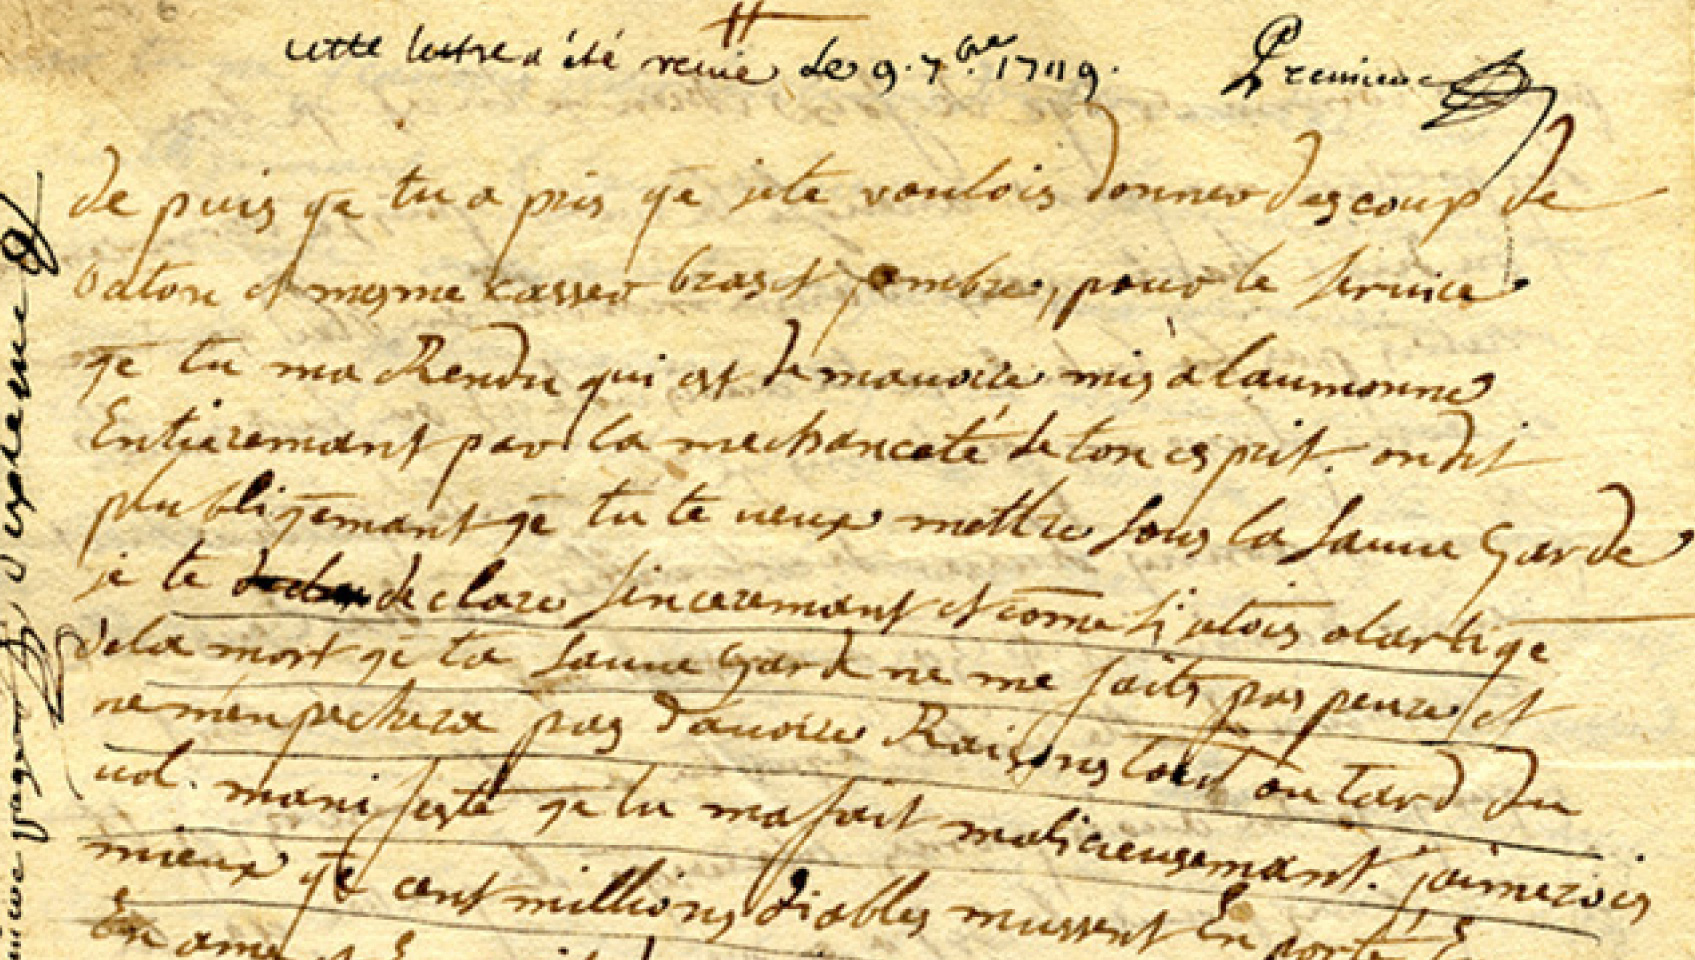 cette lettre a été reçuie le 9. 7bre 1749. Premiere
de puis qe tu a pris qe je te voulois donner des coup de
baton et mesme casser bras et jambre, pour le service
qe tu ma Rendu qui est de mauoire mis a laumonne
Entieremant par la mechanceté de ton esprit. on dit
publiqemant qe tu te ueux mettre sous la sauue Garde
je te declare sinceremant et come si jetois alartiqe
dela mort qe ta sauue Garde ne me faits pas peure et
ne menpechera pas dauoire Raisons tost ou tard du
uol. manifeste qe tu ma fait malicieusemant. jaimerois
mieux qe cent millions diables mussent En porté
En ame et